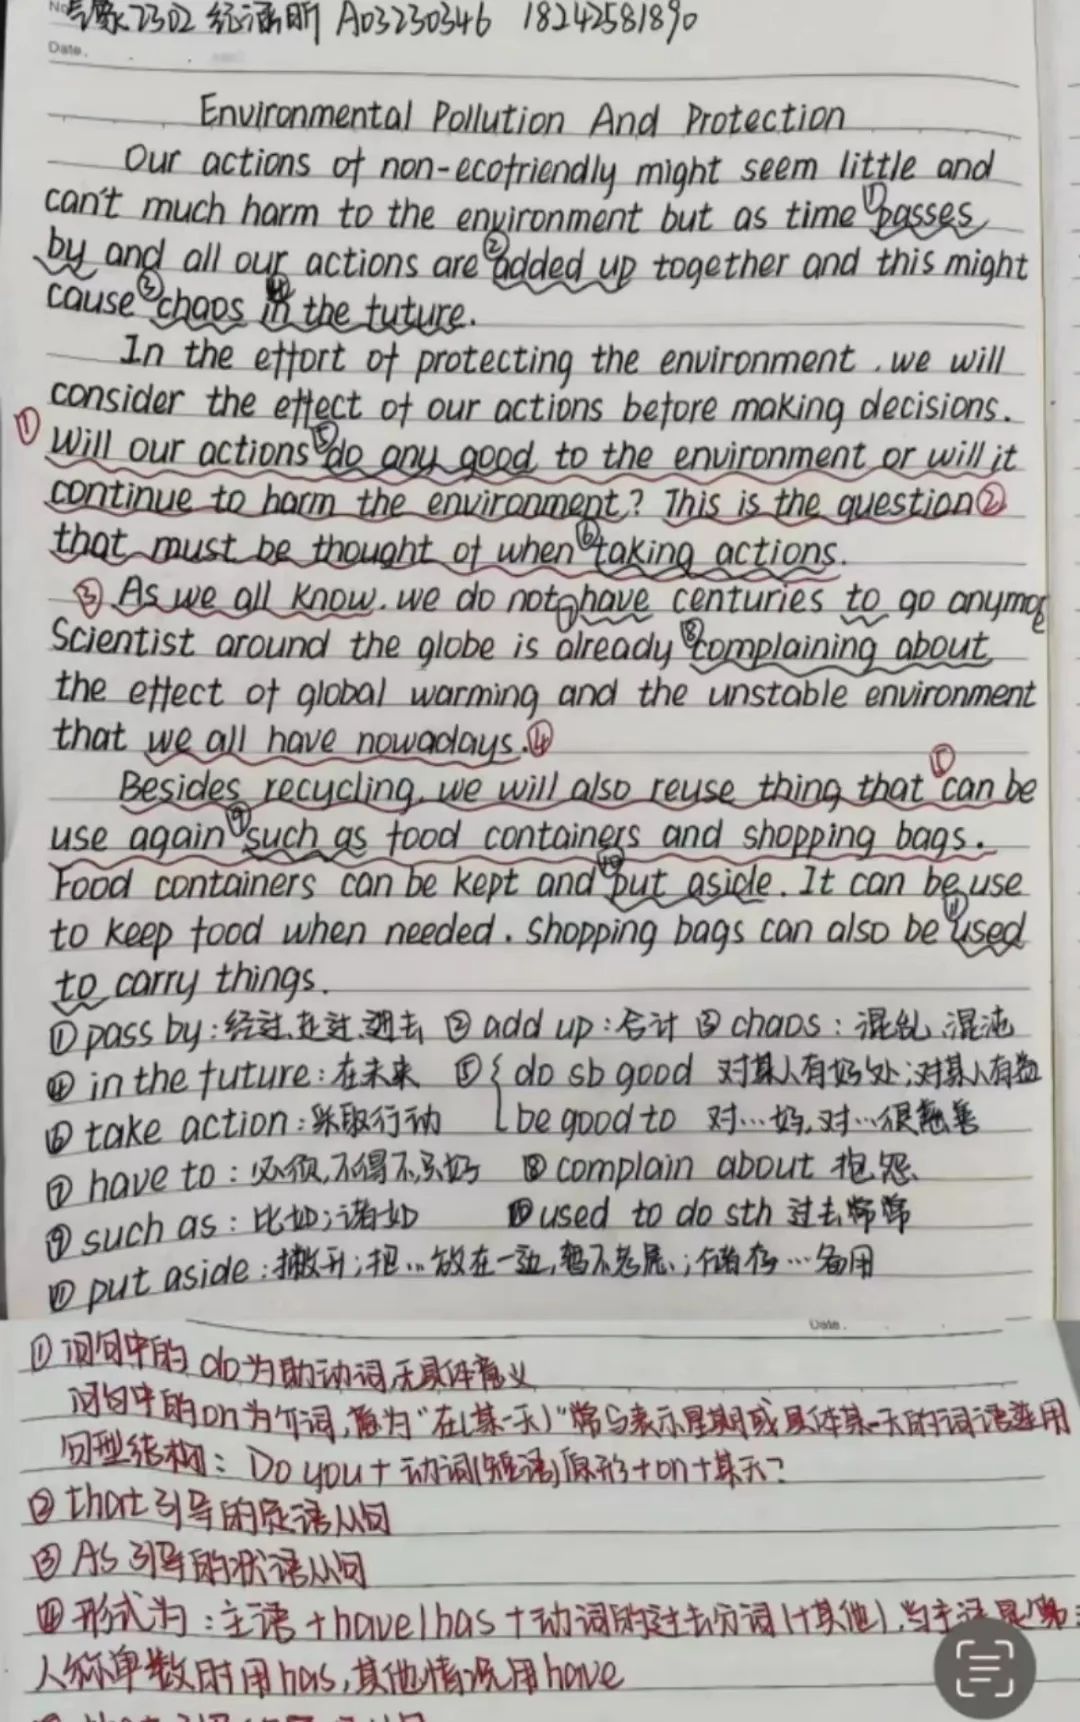 No 气象2302 纪涵昕 A03230346 18242581890
Date.
Environmental Pollution And Protection
Our actions of non-ecofriendly might seem little and
can't much harm to the environment but as time ①passes
by and all our actions are ②added up together and this might
cause ③chaos ④in the future.
In the effort of protecting the environment, we will
consider the effect of our actions before making decisions.
① Will our actions ⑤do any good to the environment or will it
continue to harm the environment? This is the question②
that must be thought of when ⑥taking actions.
③ As we all know, we do not ⑦have centuries to go anymore
Scientist around the globe is already ⑧complaining about
the effect of global warming and the unstable environment
that we all have nowadays.④
Besides recycling, we will also reuse thing that ⑤can be
use again ⑨such as food containers and shopping bags.
Food containers can be kept and ⑩put aside. It can be use
to keep food when needed. Shopping bags can also be ⑪used
to carry things.
①pass by:经过,赴过,逝去 ②add up:合计 ③chaos:混乱,混沌
④in the future:在未来 ⑤{do sb good 对某人有好处;对某人有益
⑥take action:采取行动 be good to 对…好,对…很慈善
⑦have to:必须,不得不,只好 ⑧complain about 抱怨
⑨such as:比如;诸如 ⑩used to do sth 过去常常
⑪put aside:撇开;把…放在一边,暂不考虑;储存…备用
Date.
①问句中的do为助动词,无具体意义
问句中的on为介词,意为"在(某一天)"常与表示星期或具体某一天的词语连用
句型结构:Do you+动词(短语)原形+on+某天?
②that引导的定语从句
③As引导的状语从句
④形式为:主语+have/has+动词的过去分词(+其他),当主语是第三
人称单数时用has,其他情况用have